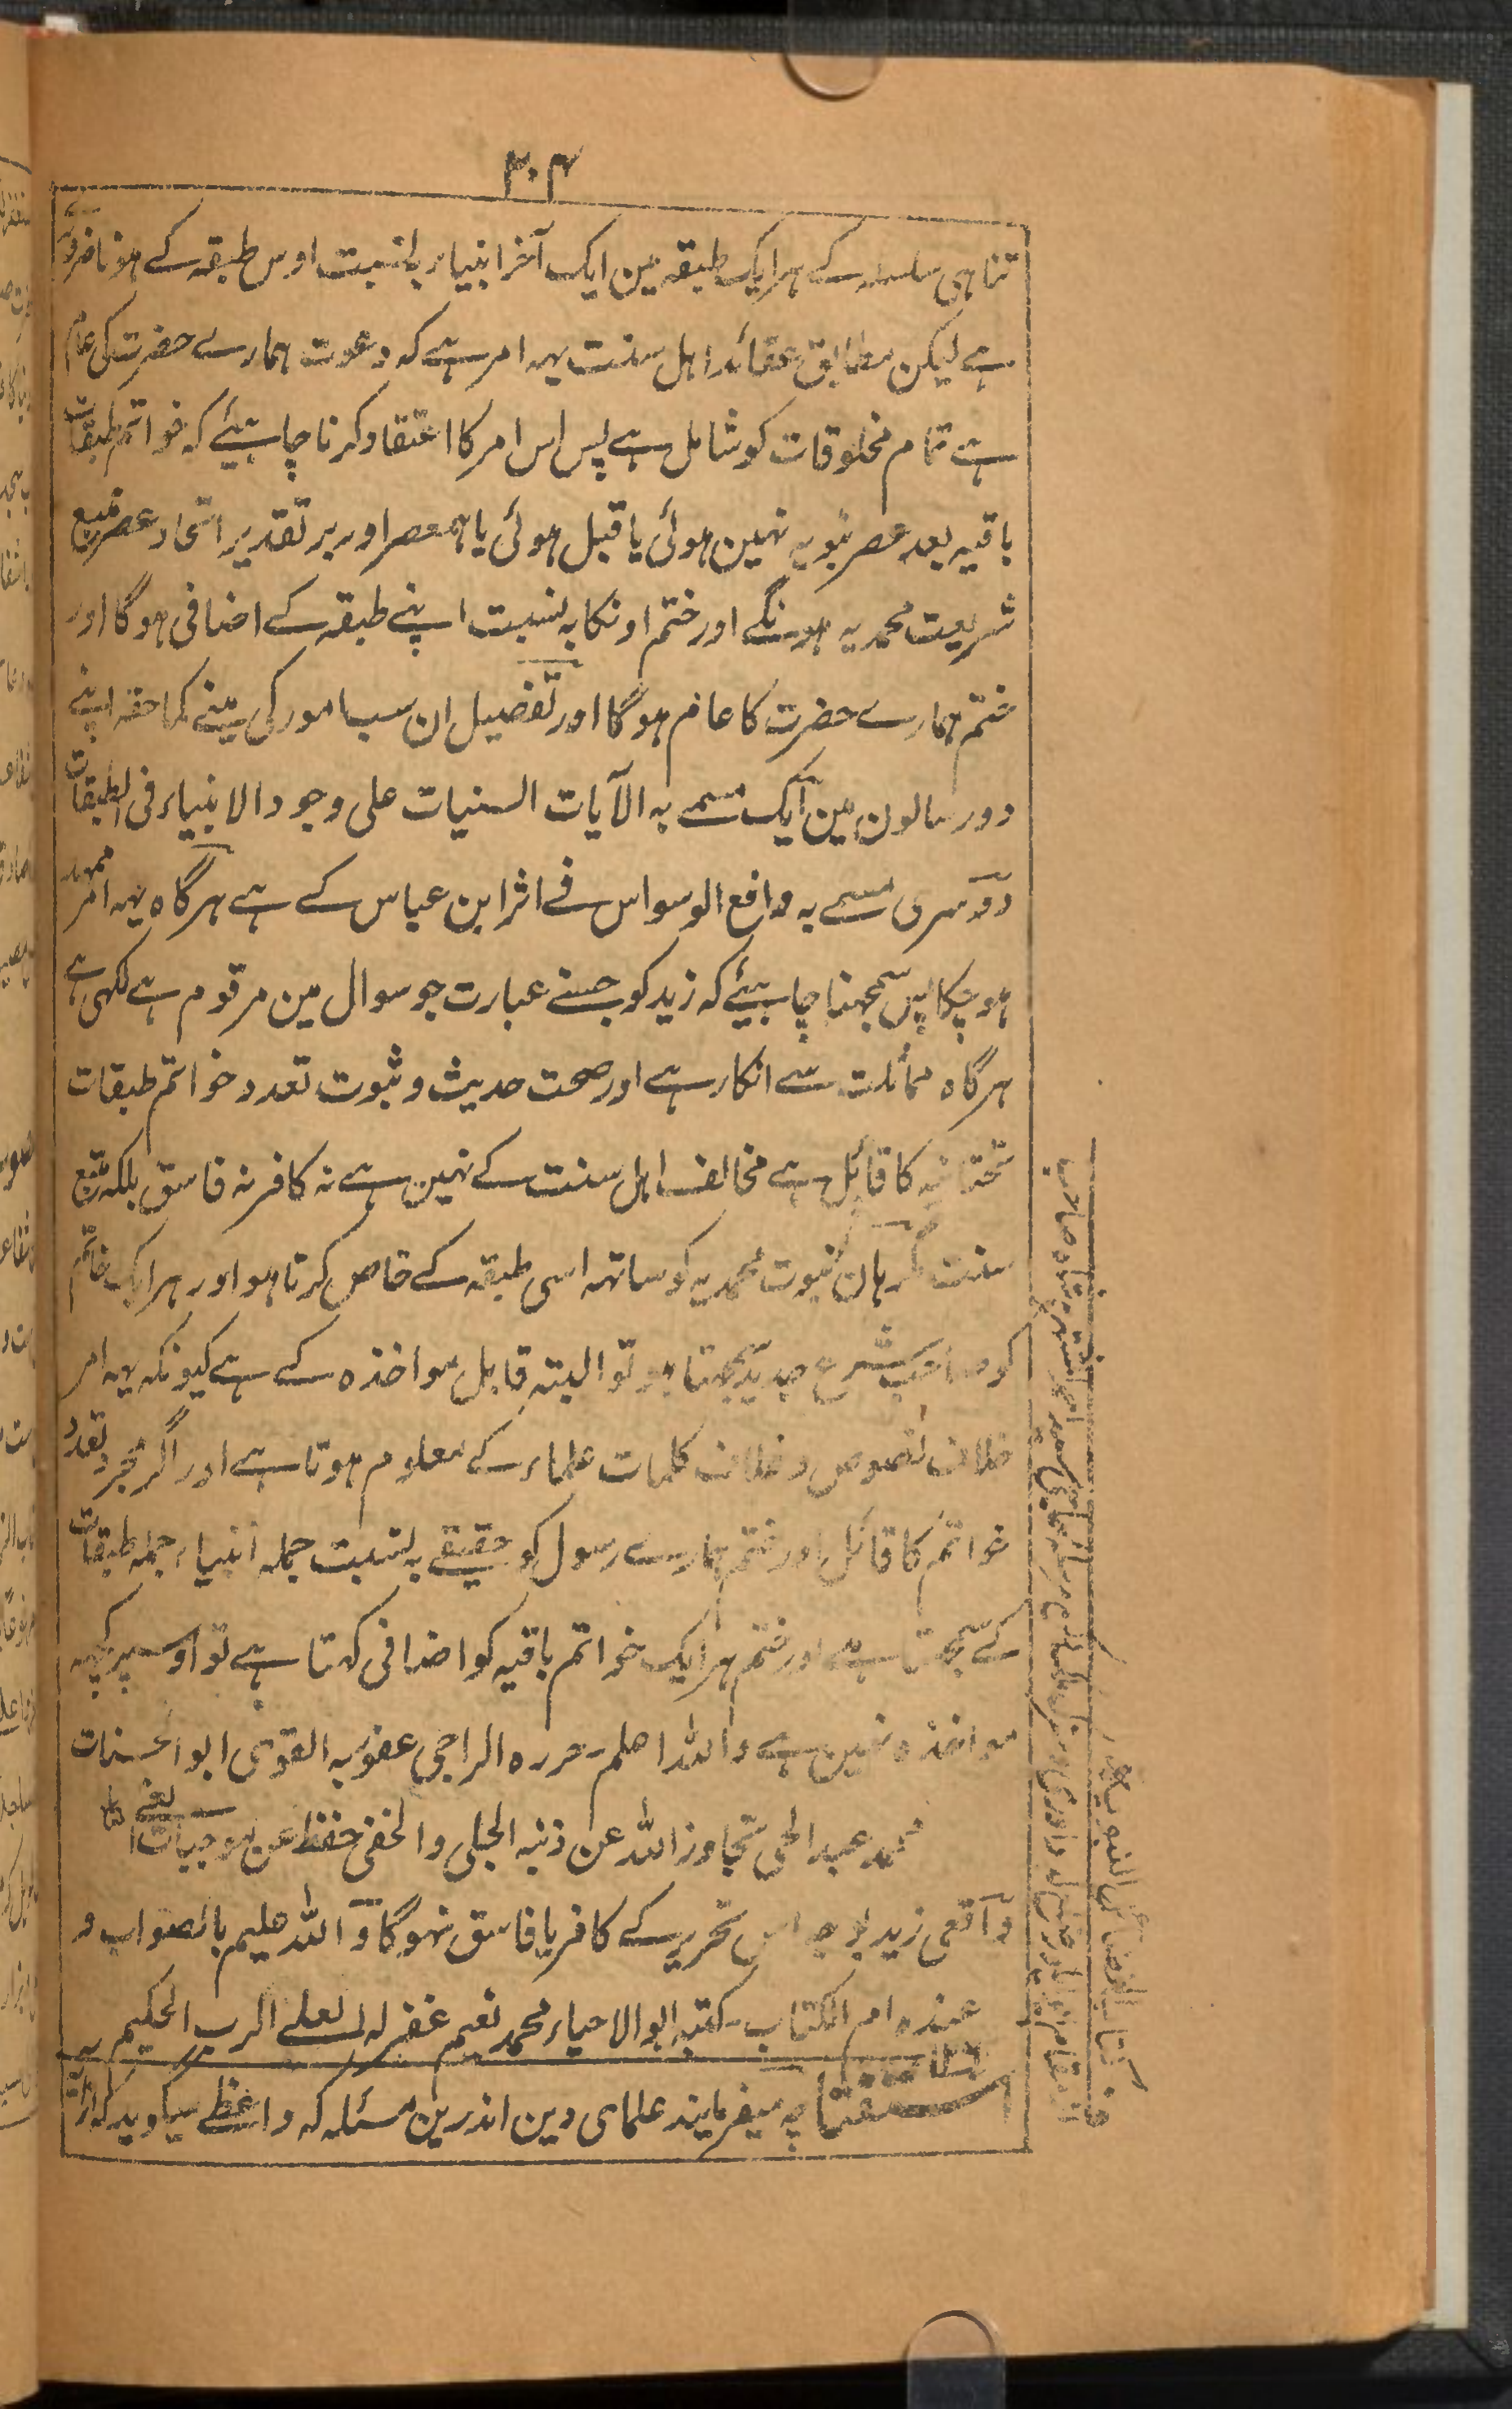 ۳۰۴
تناہی سلسلہ کے ہر ایک طبقہ مین ایک آخر انبیاء بالنسبت اوس طبقہ کے ہونا ضرور
ہے لیکن مطابق عقائد اہل سنت یہہ امر ہے کہ دعوت ہمارے حضرت کی عام
ہے تمام مخلوقات کو شامل ہے پس اس امر کا اعتقاد کرنا چاہیئے کہ خواتم طبقات
باقیہ بعد عصر نبویہ نہین ہوئی یا قبل ہوئی یا ہمعصر اور بر تقدیر اتحاد عصر متبع
شریعت محمدیہ ہونگے اور ختم اونکا بہ نسبت اپنے طبقہ کے اضافی ہوگا اور
ختم ہمارے حضرت کا عام ہوگا اور تفصیل ان سب امور کی مینے کما حقہ اپنے
دو رسالون مین ایک مسمے بہ الآیات البینات علی وجود الانبیاء فی الطبقات
دوسری مسمے بہ دافع الوسواس فے اثر ابن عباس کے ہے ہرگاہ یہہ امر ممہد
ہوچکا پس سمجھنا چاہیئے کہ زید کو جسنے عبارت جو سوال مین مرقوم ہے لکہی ہے
ہرگاہ مماثلت سے انکار ہے اور صحت حدیث و ثبوت تعدد خواتم طبقات
تحتانیہ کا قائل ہے مخالف اہل سنت کے نہین ہے نہ کافر نہ فاسق بلکہ متبع
سنت مگر ہان نبوت محمدیہ کو ساتھہ اسی طبقہ کے خاص کرتا ہو اور ہر ایک خاتم
کو صاحب شرع جدید سمجہتا ہو تو البتہ قابل مواخذہ کے ہے کیونکہ یہہ امر
خلاف نصوص و خلاف کلمات علماء کے معلوم ہوتا ہے اور اگر مجرد تعدد
خواتم کا قائل اور ختم ہمارے رسول کو حقیقے بہ نسبت جملہ انبیاء جملہ طبقات
کے سمجہتا ہے اور ختم ہر ایک خواتم باقیہ کو اضافی کہتا ہے تو اوسپر کچہہ
مواخذہ نہین ہے واللہ اعلم حررہ الراجی عفو ربہ القوی ابو الحسنات
محمد عبد الحی تجاوز اللہ عن ذنبہ الجلی والخفی حفظ عن موجبات الغی
واقعی زید بوجہ اس تحریر کے کافر یا فاسق نہوگا واللہ علیم بالصواب و
عندہ ام الکتاب کتبہ ابو الاحیاء محمد نعیم غفر لہ العلے الرب الحکیم
استفتا چہ میفرمایند علمای دین اندرین مسئلہ کہ واعظے میگوید کہ